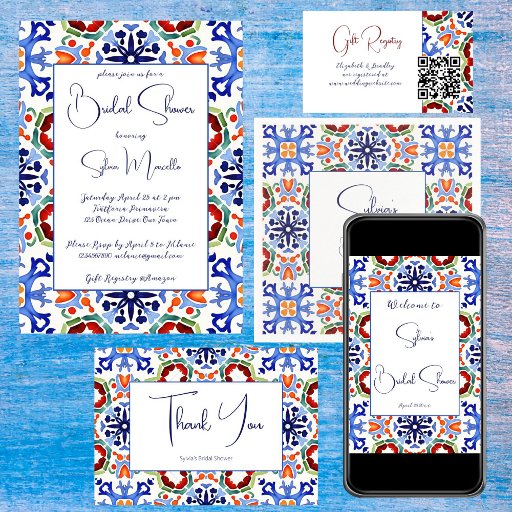 please join us for a
Bridal Shower
honoring
Sylvia Morcello
Saturday April 25 at 2 pm
Trattoria Primavera
123 Ocean Drive Our Town
Please Rsvp by April 5 to Melanie
1234567890 melanie@gmail.com
Gift Registry @Amazon
Gift Registry
Elizabeth & Bradley
are registered at
www.weddingwebsite.com
Sylvia's
Welcome to
Sylvias
Bridal Shower
Thank You
Sylvia's Bridal Shower